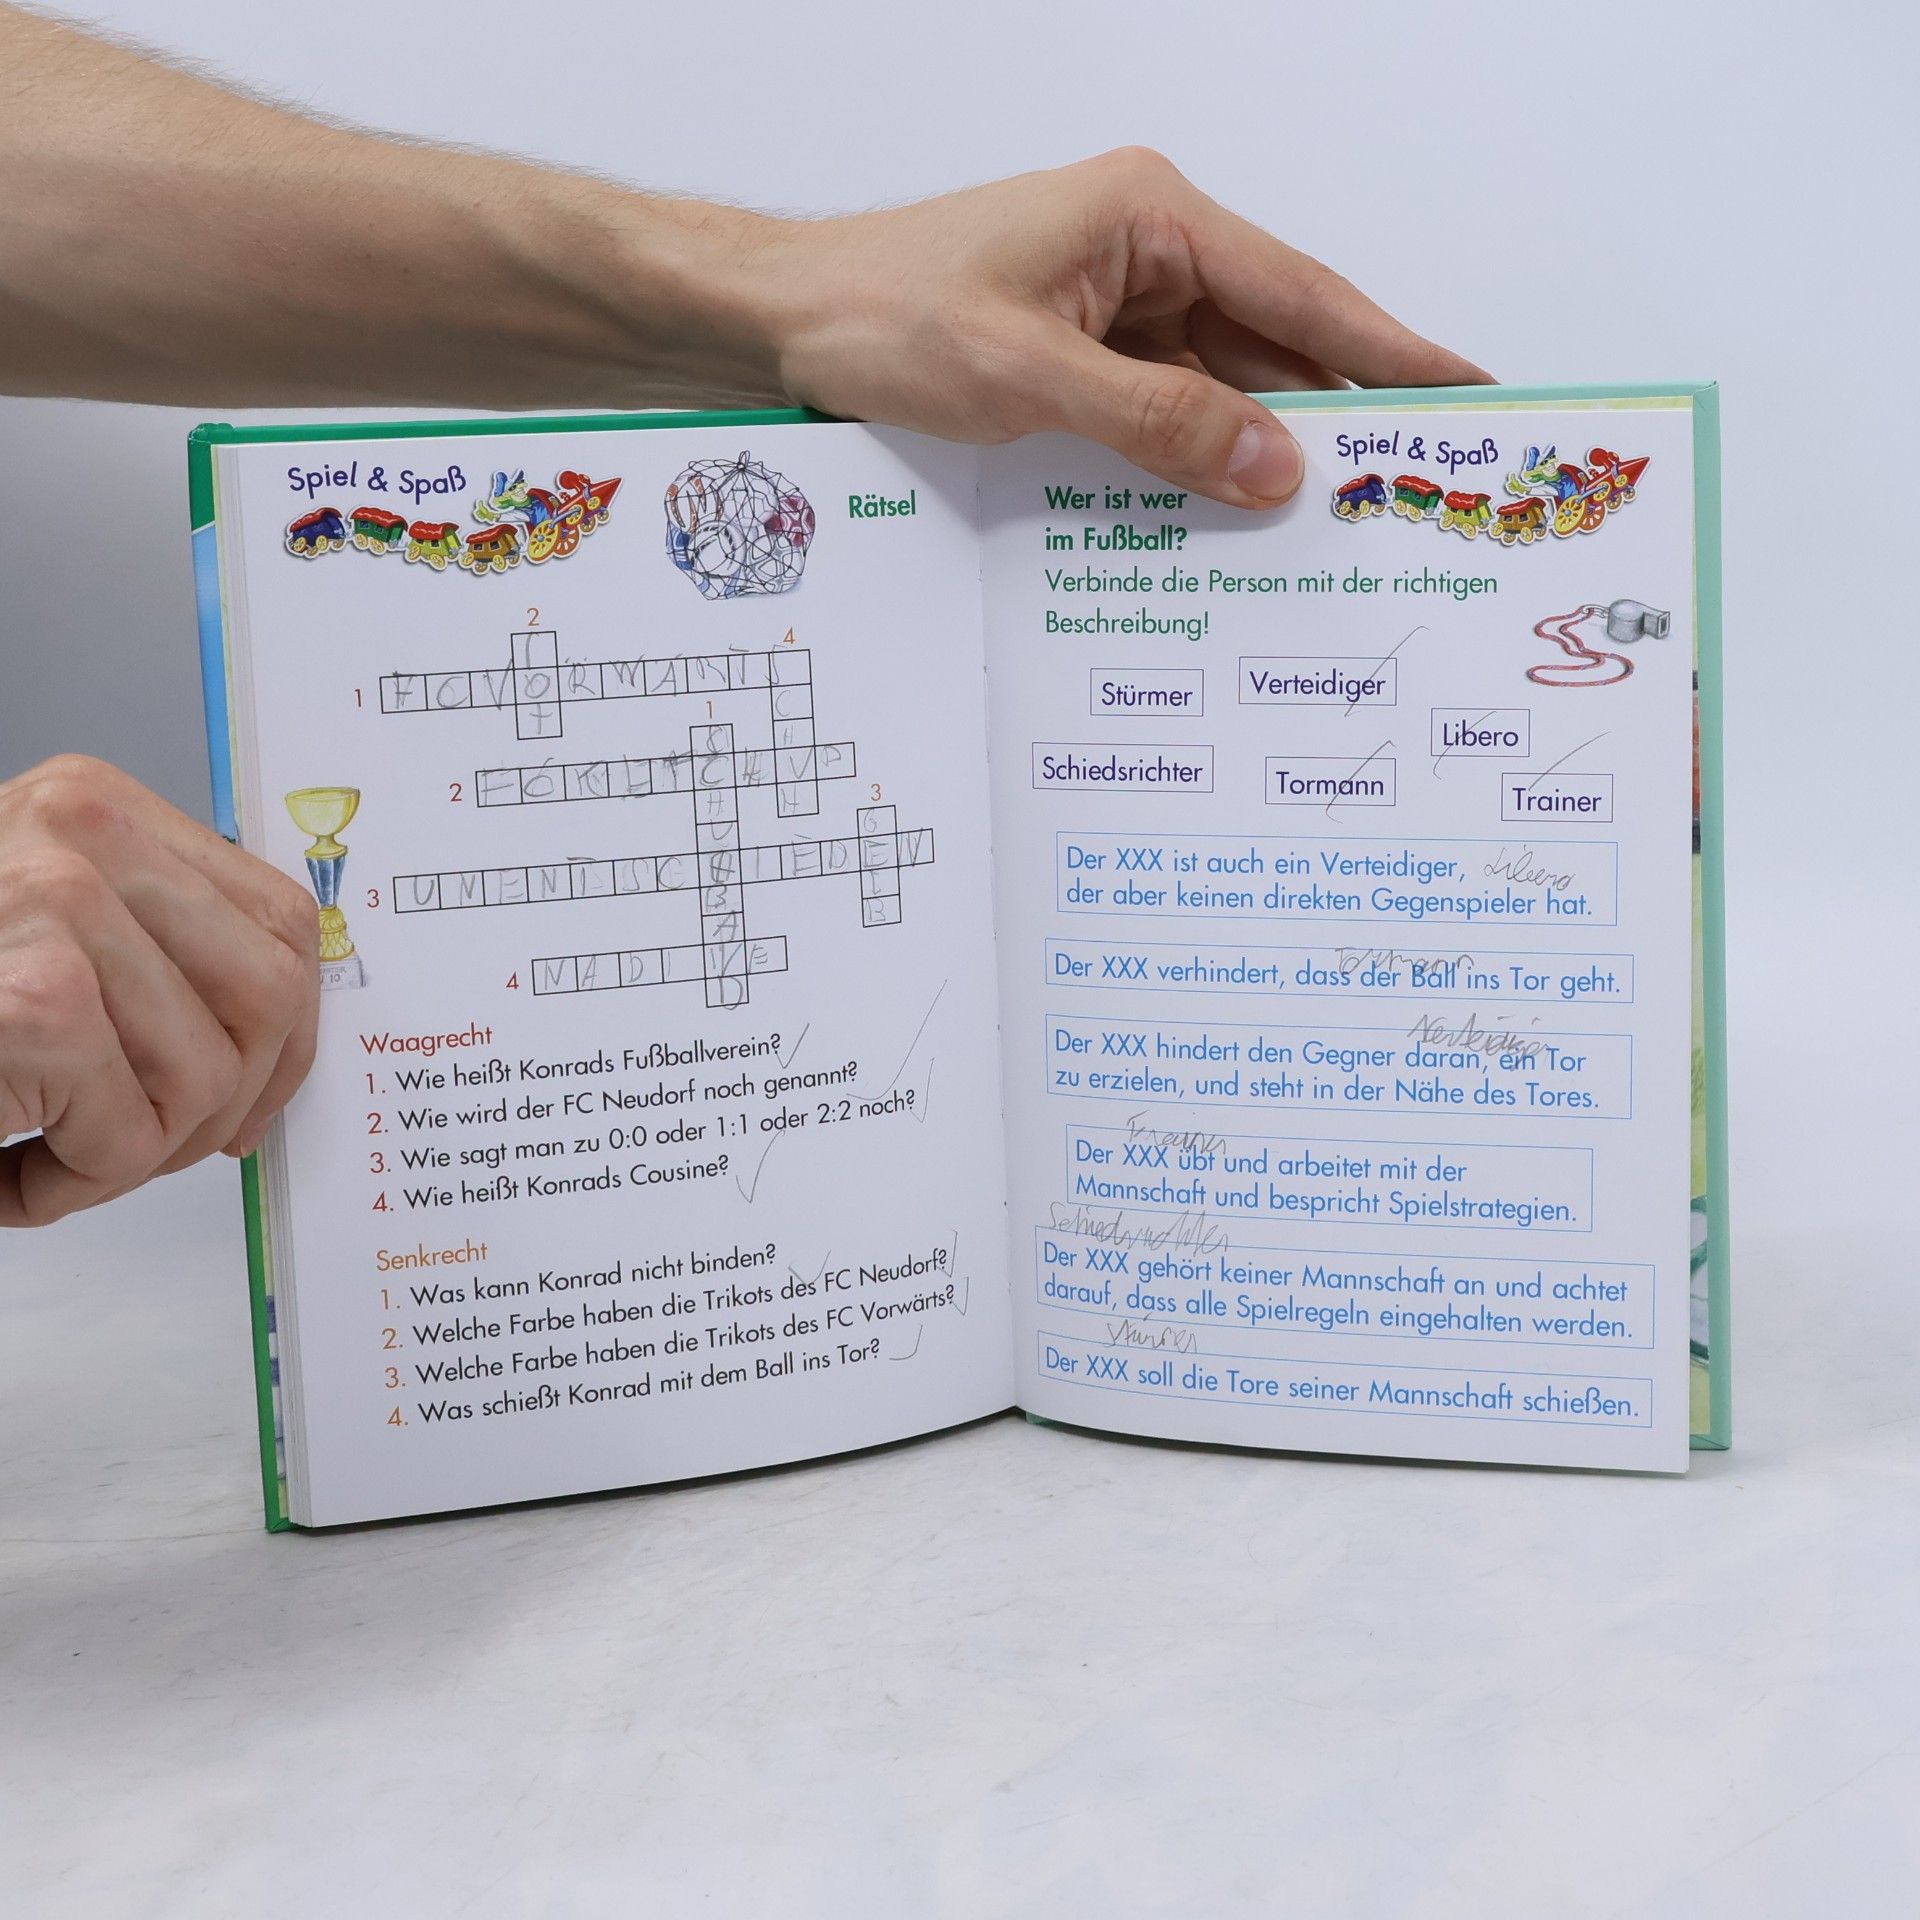 Spiel & Spaß
Rätsel
2
4
1
FCVORWÄRTS
1
2
3
3
UNENTSCHIEDEN
4
NADINE
Waagrecht
1. Wie heißt Konrads Fußballverein?
2. Wie wird der FC Neudorf noch genannt?
3. Wie sagt man zu 0:0 oder 1:1 oder 2:2 noch?
4. Wie heißt Konrads Cousine?
Senkrecht
1. Was kann Konrad nicht binden?
2. Welche Farbe haben die Trikots des FC Neudorf?
3. Welche Farbe haben die Trikots des FC Vorwärts?
4. Was schießt Konrad mit dem Ball ins Tor?
Spiel & Spaß
Wer ist wer
im Fußball?
Verbinde die Person mit der richtigen
Beschreibung!
Stürmer
Verteidiger
Libero
Schiedsrichter
Tormann
Trainer
Der XXX ist auch ein Verteidiger, Libero
der aber keinen direkten Gegenspieler hat.
Tormann
Der XXX verhindert, dass der Ball ins Tor geht.
Verteidiger
Der XXX hindert den Gegner daran, ein Tor
zu erzielen, und steht in der Nähe des Tores.
Trainer
Der XXX übt und arbeitet mit der
Mannschaft und bespricht Spielstrategien.
Schiedsrichter
Der XXX gehört keiner Mannschaft an und achtet
darauf, dass alle Spielregeln eingehalten werden.
Stürmer
Der XXX soll die Tore seiner Mannschaft schießen.